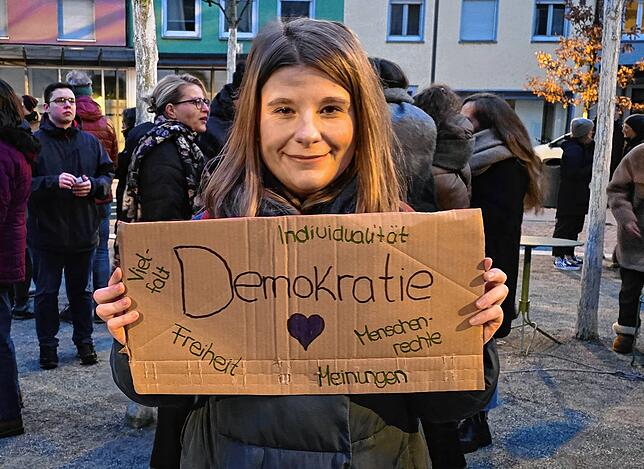 Individualität
Viel-
falt
Demokratie
Freiheit
Menschen-
rechte
Meinungen